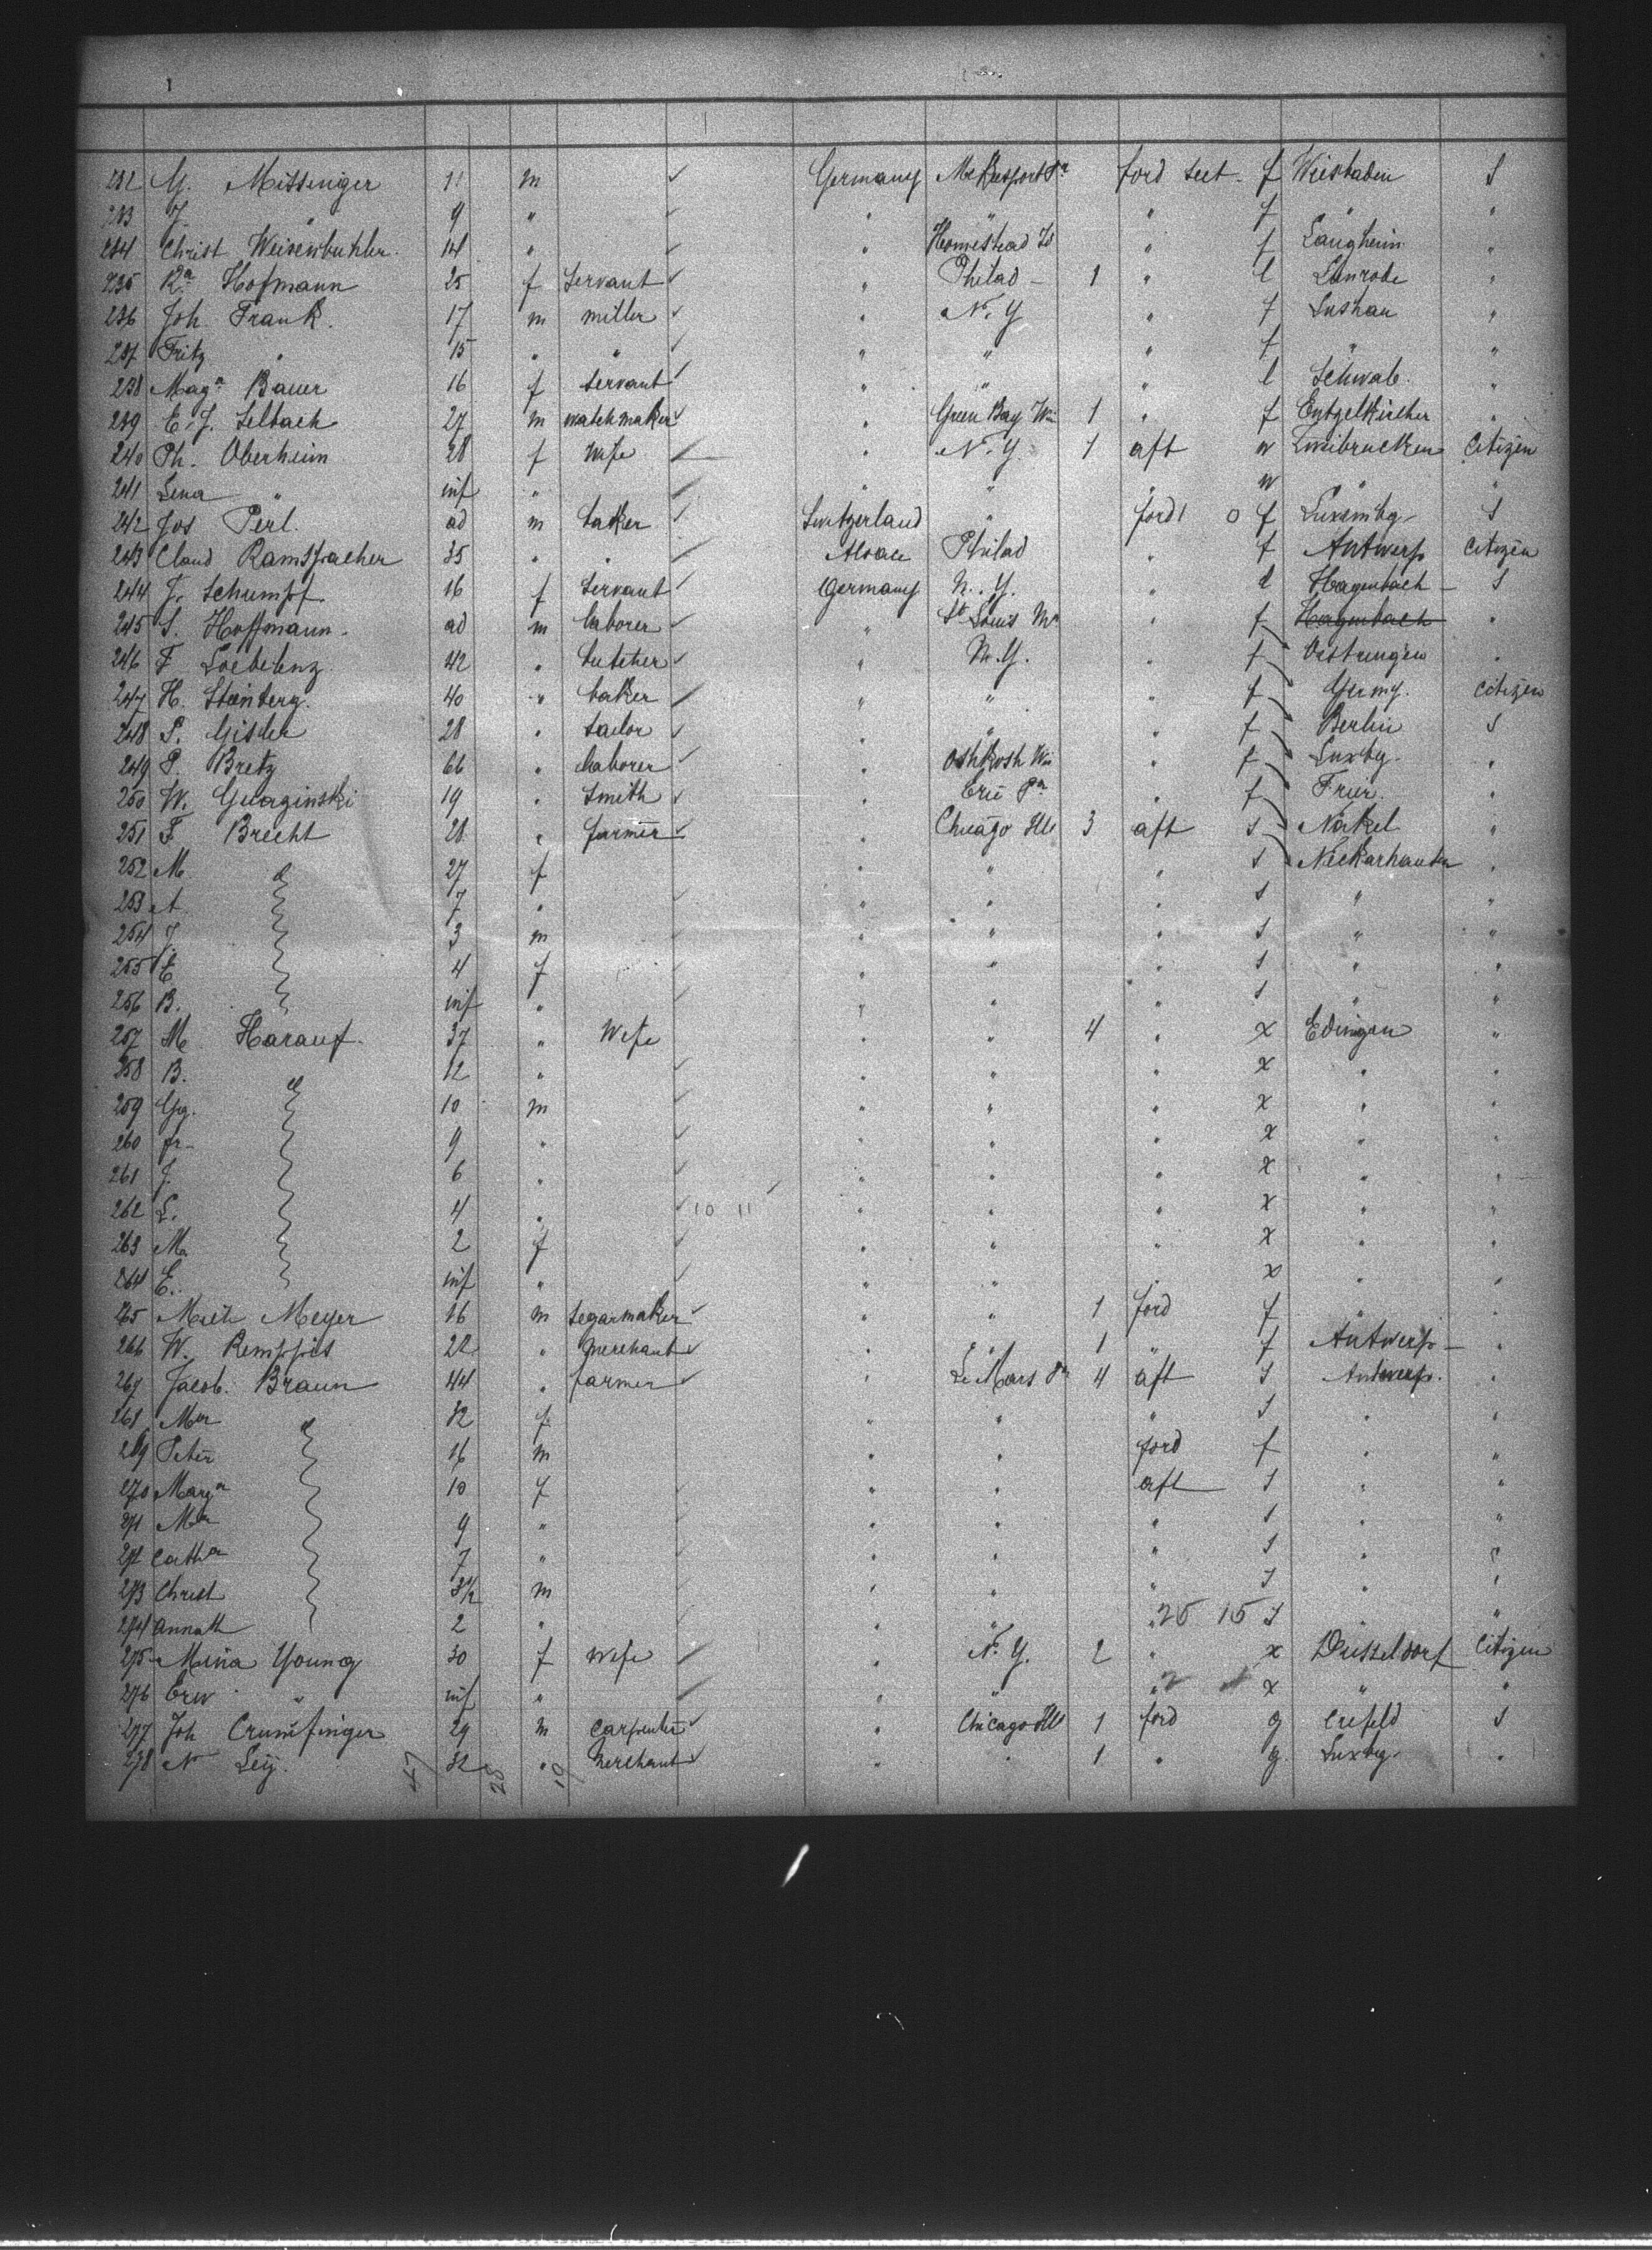 232 G. Missiniger 11 m Germany McKeesport Pa ford sect. f Wiesbaden S
233 J. " 9 " " " " f " "
234 Christ Weisenbuhler 14 " " Homestead " f Langheim "
235 Ka Hofmann 25 f Servant " Philad 1 " l "
236 Joh Frank 17 m miller " N.Y " f "
237 Fritz " 15 " " " " " f " "
238 Maga Bauer 16 f Servant " " " l Schwab. "
239 E. J. Selbach 27 m watchmaker " Green Bay Wis 1 " f "
240 Ph. Oberheim 28 f Wife " N.Y. 1 aft w Zweibrucken Citizen
241 Lena " inf " " " " w " "
242 Jos Perl. ad m baker Switzerland " ford 1 0 f Luxembg S
243 Claud Ramspacher 35 " " Alsace Philad " f Antwerp Citizen
244 J. Schumpf 16 f Servant Germany N.Y. " l Hagenbach S
245 S. Hoffmann ad m laborer " St Louis Mo " f Hagenbach "
246 F Loebelenz 42 " butcher " N.Y. " f Oestringen "
247 H. Steinberg. 40 " baker " " " f Germy. Citizen
248 P. Gisler 28 " tailor " " " f Berlin S
249 P. Bretz 66 " laborer " Oshkosh Wis " f Luxbg. "
250 W. 19 " Smith " Erie Pa " f Trier. "
251 F Brecht 28 " farmer " Chicago Ills 3 aft S Nakel "
252 M 27 f " " " S Neckarhausen "
253 A 7 " " " " S " "
254 J 3 m " " " S " "
255 E 4 f " " " S " "
256 B. inf " " " " S " "
257 M Harauf 37 " Wife " " 4 " x Edingen "
258 B. 12 " " " " x " "
259 Gg. 10 m " " " x " "
260 Fr 9 " " " " x " "
261 J. 6 " " " " x " "
262 L. 4 " 10 11 " " " x " "
263 M 2 f " " " x " "
264 E. inf " " " " x " "
265 Mich Meyer 16 m Segarmaker " " 1 ford f " "
266 W. Remppis 22 " merchant " " 1 " f Antwerp "
267 Jacob Braun 44 " farmer " Le Mars 4 aft S Antwerp. "
268 Mar 32 f " " " S " "
269 Peter 16 m " " ford f " "
270 Marga 10 f " " aft S " "
271 Mar 9 " " " " S " "
272 Catha 7 " " " " S " "
273 Christ 3 1/2 m " " " S " "
274 Annath 2 " " " " 25 15 S " "
275 Mina Young 30 f Wife " N.Y. 2 " x Dusseldorf Citizen
276 Erw " inf " " " " x " "
277 Joh Crumfinger 29 m Carpenter " Chicago Ills 1 ford g Crefeld S
278 N Ley. 32 " Merchant " " 1 " g Luxbg. "
47 28 10